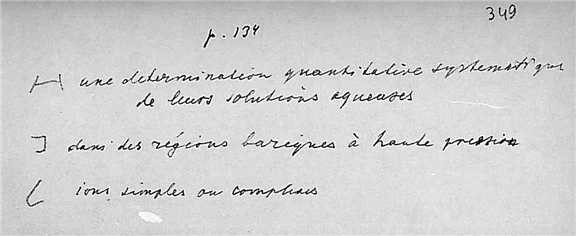 349
p. 134
une determination quantitative systematique
de leurs solutions aqueuses
dans des régions bariques à haute pression
ions simples ou complexes